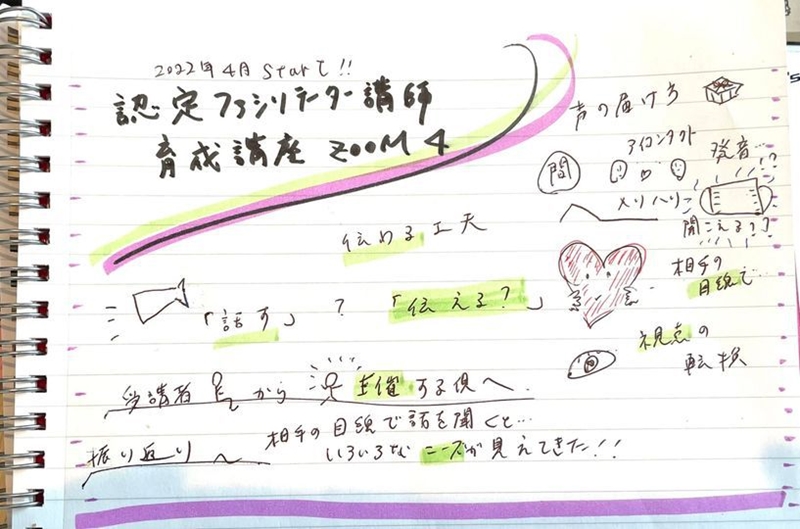 2022年4月Start!!
認定ファシリテーター講師
育成講座 ZOOM 4
声の届け方
アイコンタクト
間
メリハリ
発音…!?
聞こえる??
伝わる工夫
「話す」?「伝える?」
相手の
目線で…
視点の
転換
受講者から主催する側へ
振り返り〜
相手の目線で話を聞くと…
いろいろなニーズが見えてきた!!